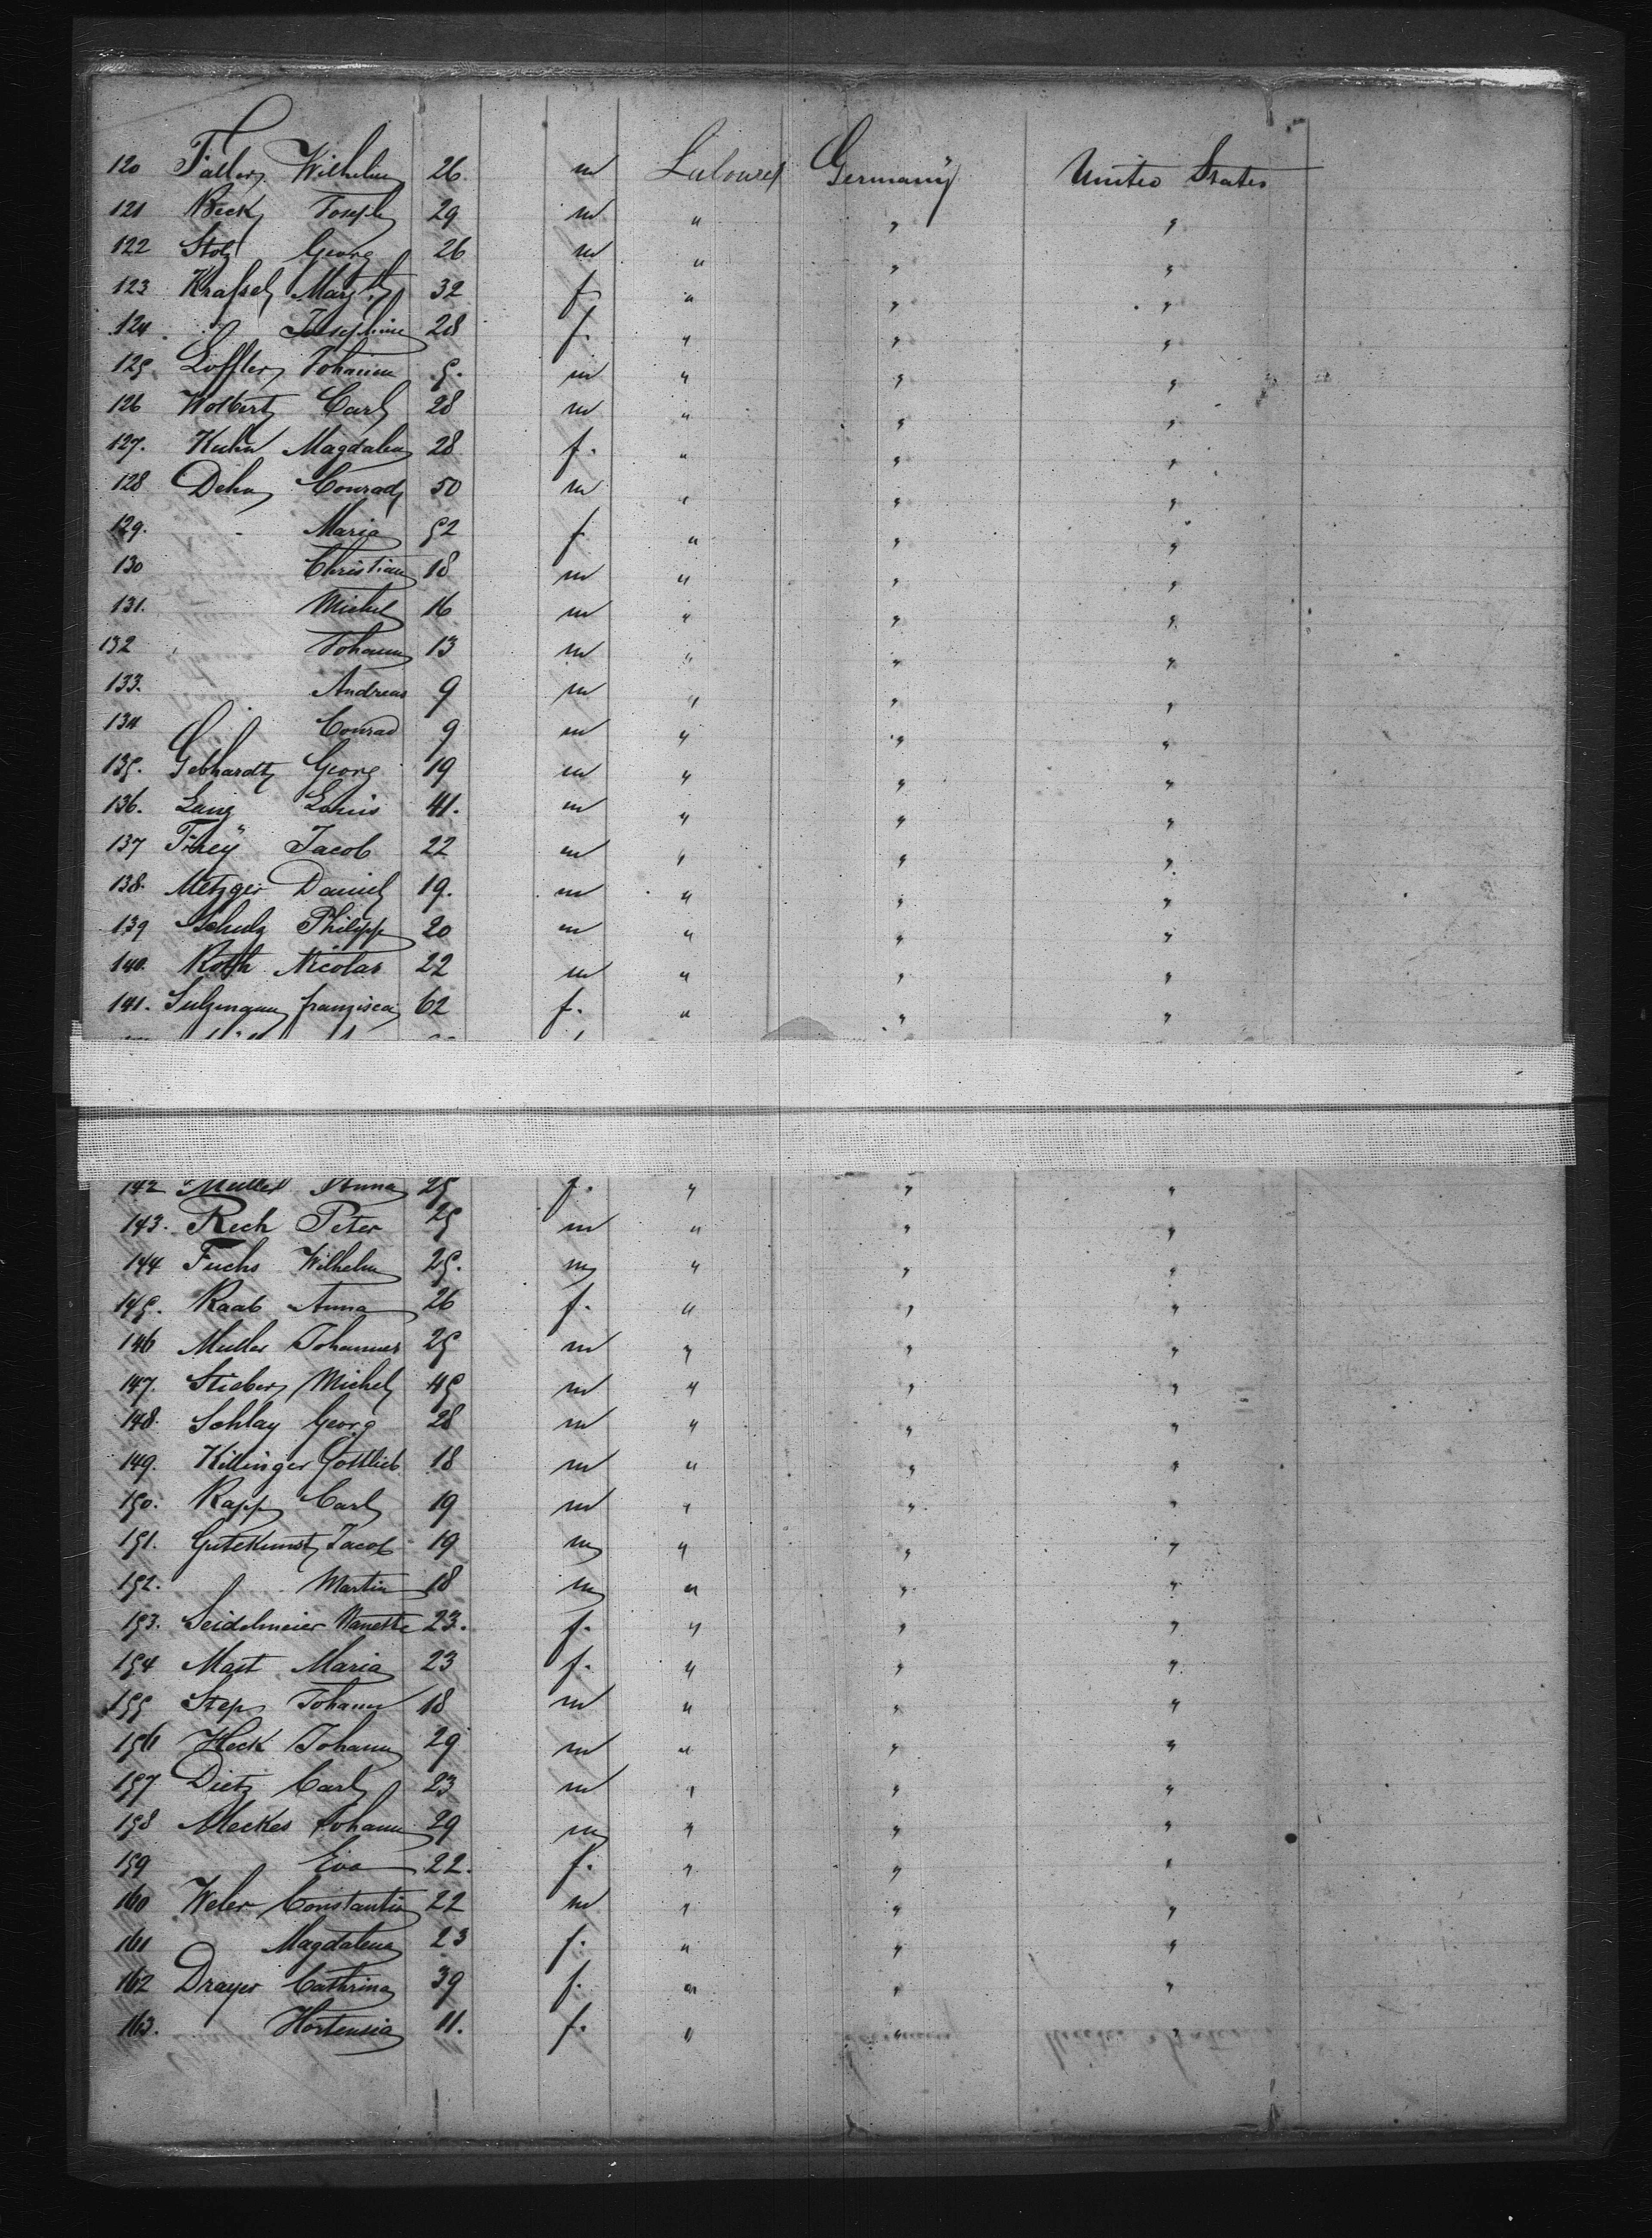 120 Faller Wilhelm 26. m Labourer Germany United States
121 Beck Joseph 29 m " " "
122 Stolz Georg 26 m " " "
123 Krassel Marg. 32 f " " "
124. " Josephine 28 f. " " "
125. Löffler Johann 5. m " " "
126 Wolbert Carl 28 m " " "
127. Kuhn Magdalena 28 f. " " "
128 Dehn Conrad 50 m " " "
129. - Maria 52 f " " "
130 Christian 18 m " " "
131. Michel 16 m " " "
132 Johann 13 m " " "
133. Andreas 9 m " " "
134 Conrad 9 m " " "
135. Gebhardt Georg 19 m " " "
136. Lang Louis 41. m " " "
137 Frey Jacob 22 m " " "
138. Metzger Daniel 19. m " " "
139 Schulz Philipp 20 m " " "
140. Roth Nicolas 22 m " " "
141. Sulzmann Franzisca 62 f. " " "
142 Muller Anna 25 f. " " "
143. Rech Peter 25 m " " "
144 Fuchs Wilhelm 25. m " " "
145. Raab Anna 26 f. " " "
146 Muller Johannes 25 m " " "
147. Stieber Michel 45 m " " "
148. Schlay Georg 28 m " " "
149. Killinger Gottlieb 18 m " " "
150. Rapp Carl 19 m " " "
151. Gutekunst Jacob 19 m " " "
152. " Martin 18 m " " "
153. Seidelmeier Nanette 23. f. " " "
154 Mast Maria 23 f. " " "
155 Step Johann 18 m " " "
156 Heck Johann 29 m " " "
157 Dietz Carl 23 m " " "
158 Meckes Johann 29 m " " "
159 Eva 22. f. " " "
160 Weler Constantin 22 m " " "
161 Magdalena 23 f. " " "
162 Drayer Cathrina 39 f. " " "
163. Hortensia 11. f. " " "